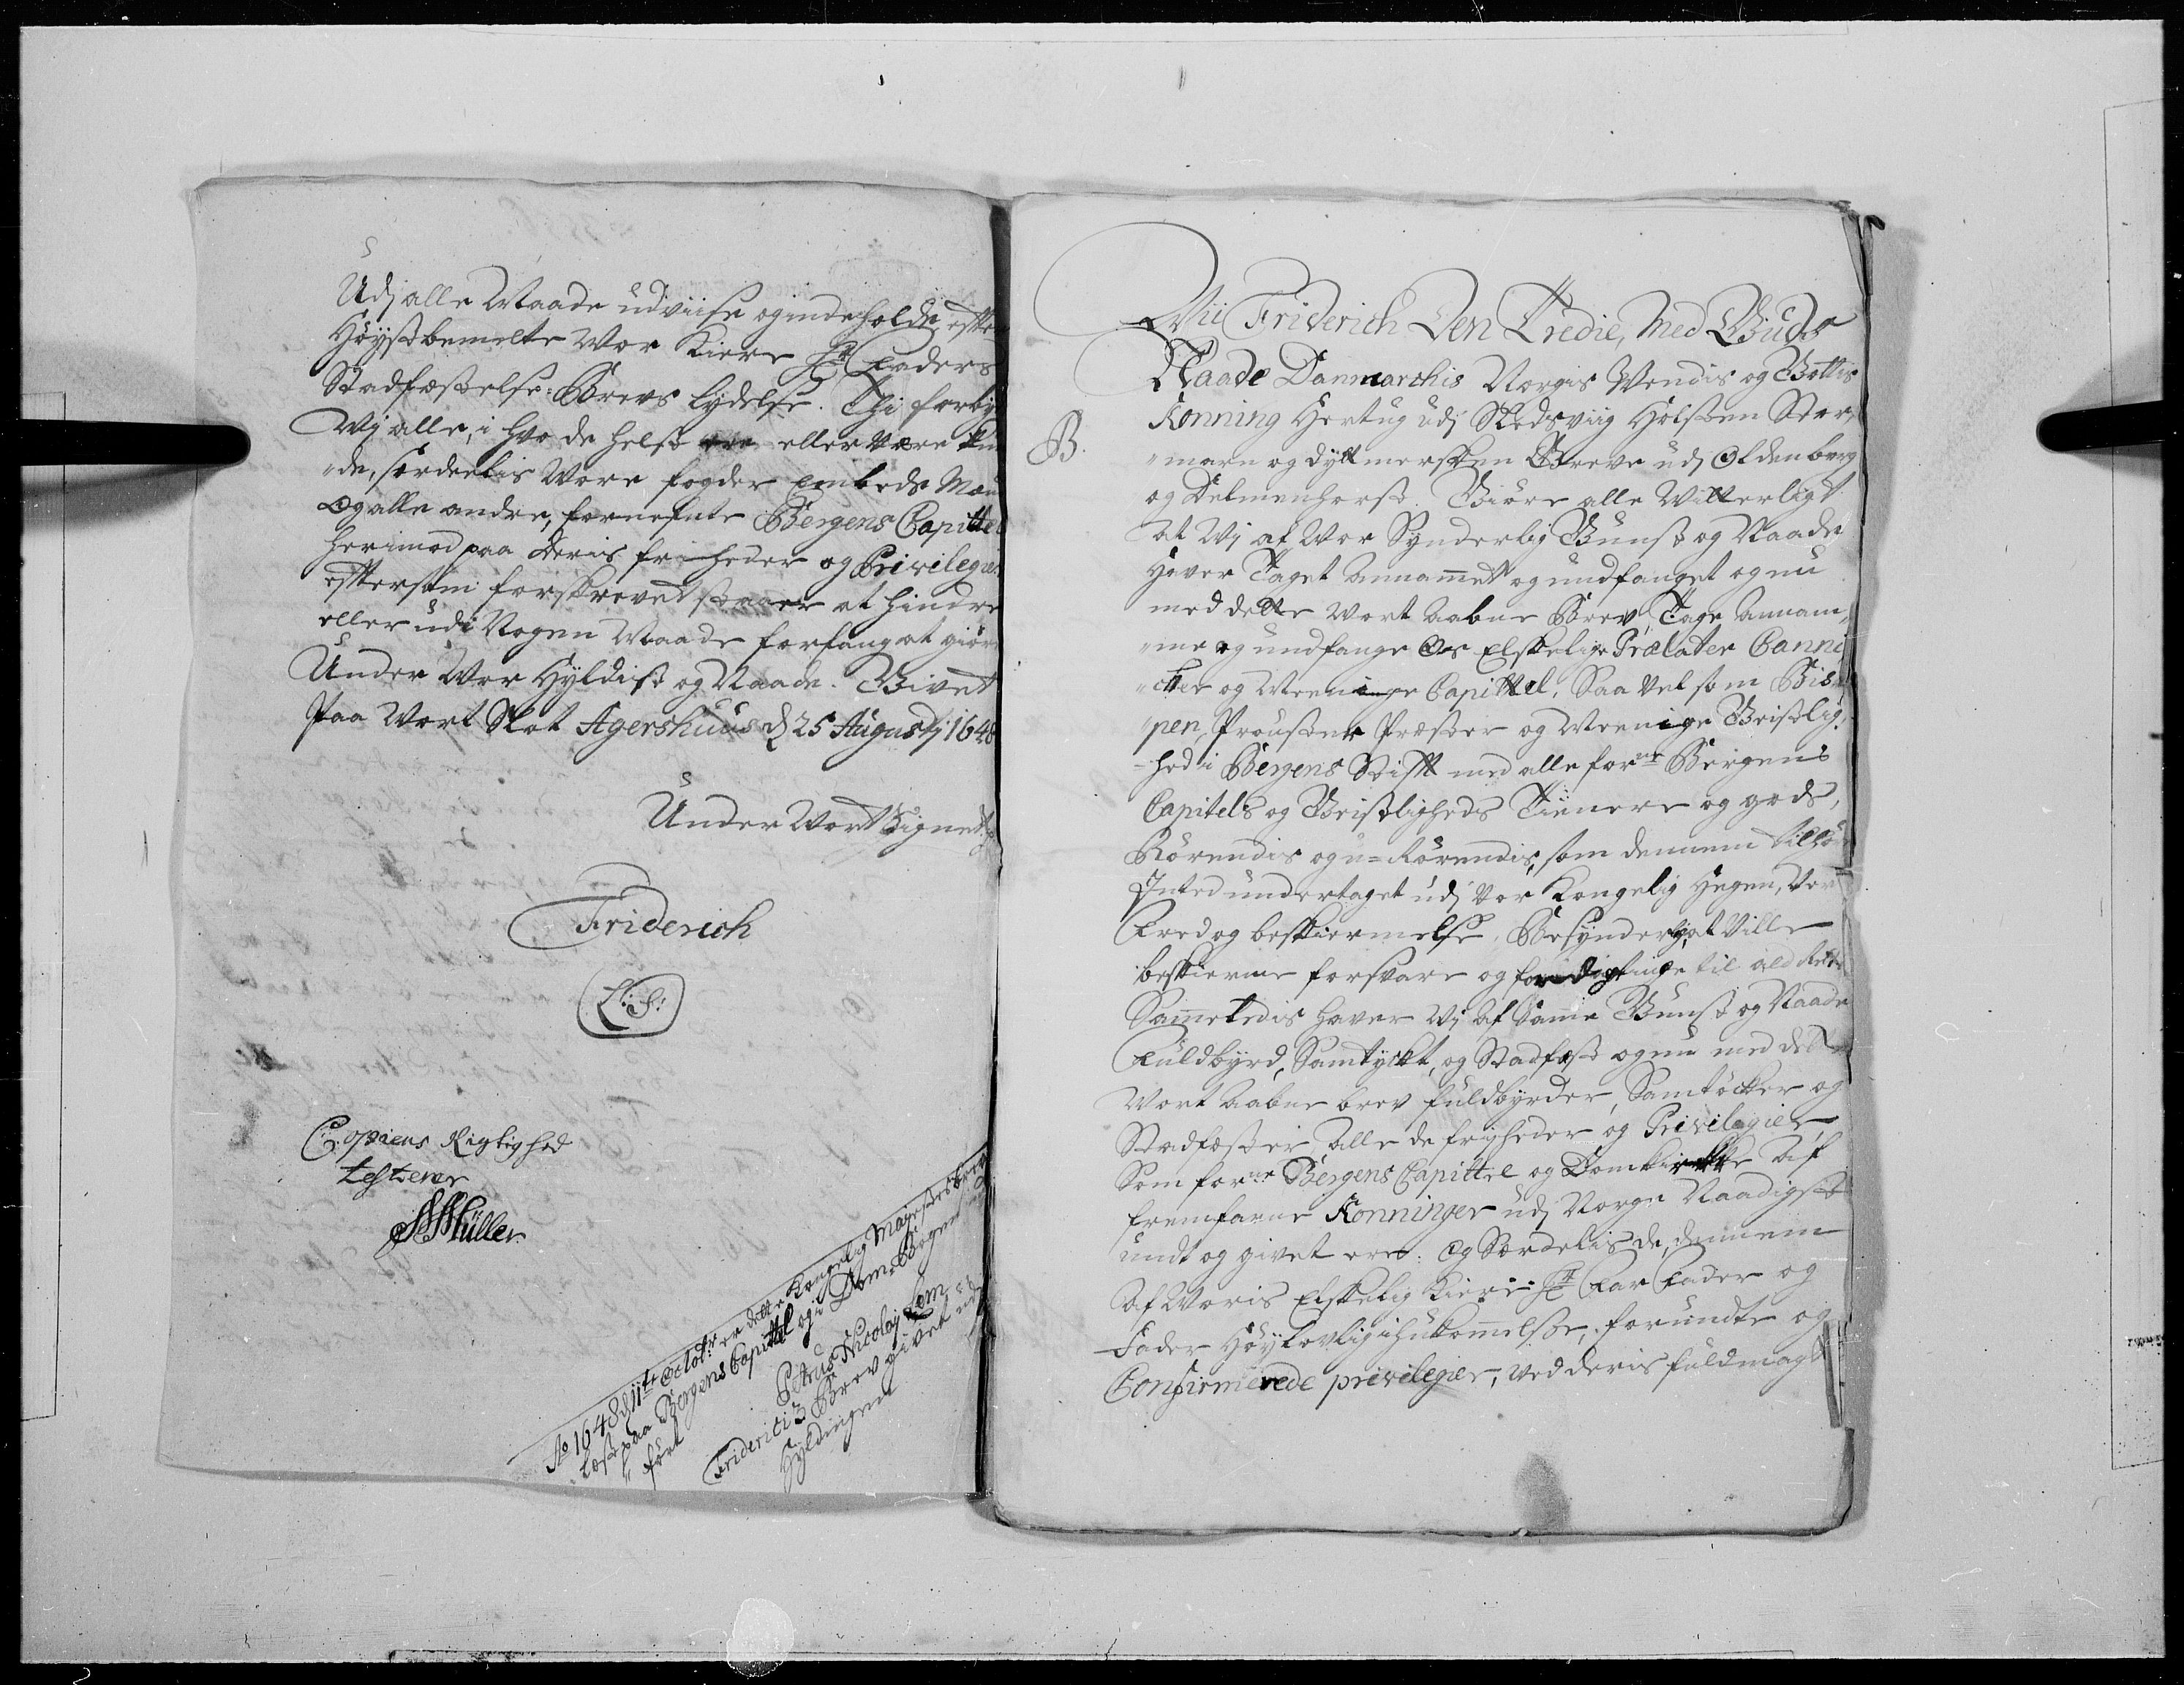 Udj alle Maade udviise og indeholde, effter
Høystbemelte Vor Kiere Hr Faders
Stadfæstelse-Brevs lydelse. Thj forbyde
Wj alle, i hvo de helst ere eller være kun„
„de, særdeelis Vore fogder Embeds Mænd
Og alle andre, forneffnte Bergens Capittel
herimod paa deris friheder og Privilegier
effterssom forskrevet staaer at hindre
eller udi Nogen Maade forfang at giøre
Under Vor Hyldist og Naade. Givet
Paa Vort Slot Agershuus d 25 Augustj 1648
Under Vort Signet
Friderich
L: S:
Copiens Rigtighed
testerer
Müller
Ao 1648 d 11te Octobr er dette Kongelig Majestets brev
Læst paa Bergens Capittel og i Dom-Bogen ind
„ført
Petrus Nicolaj
Friderici 3 Brev givet ud
Hyldingen
B.
Wii Friderich Den Tredie, Med Guds
Naade Danmarchis Norgis Vendis og Gottis
Konning Hertug udj Slesviig Holsten Stor„
„marn og dyttmersken Greve udj Oldenborg
og Delmenhorst. Giøre alle Vitterligt
at Wj af Vor Synderlig Gunst og Naade
Haver Taget Annamet og undfanget og nu
med dette Vort Aabne Brev, Tage Annam„
„me og undfange Os Elskelige Prælater Canni
„cker og Meenige Capittel, Saa vel som Bis„
pen, Proufster Præster og Meenige Geistlig„
„hed i Bergens Stifft med alle forne Bergens
Capitels og Geistligheds Tienere og gods,
Rørendis og u-Rørendis, som dennem tilhør
Inted undertaget udj Vor Kongelig Hegen, Vor
Fred og beskiermelse, Besynderligt Ville
beskierme forsvare og fordigtinge til ald Rette
Sammeledis haver Wj af samme Gunst og Naade
Fuldbyrd, Samtyckt, og Stadfæst og nu med dette
Vort Aabne brev fuldbyrder, Samtøcker og
Stadfæster Alle de friheder og Privilegier,
Som forne Bergens Capittel og Domkircke Af
fremfarne Konninger udj Norge Naadigst
undt og givet ere. Og Særdelis de, dennem
Af Voris Elskelig Kiere Hr Far Fader og
Fader Høylovlig ihukommelse, forundte og
Confirmerede privilegier, ved deris fuldmagt